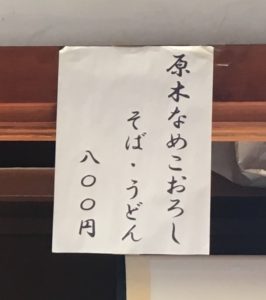 原木なめこおろし
そば・うどん
八〇〇円